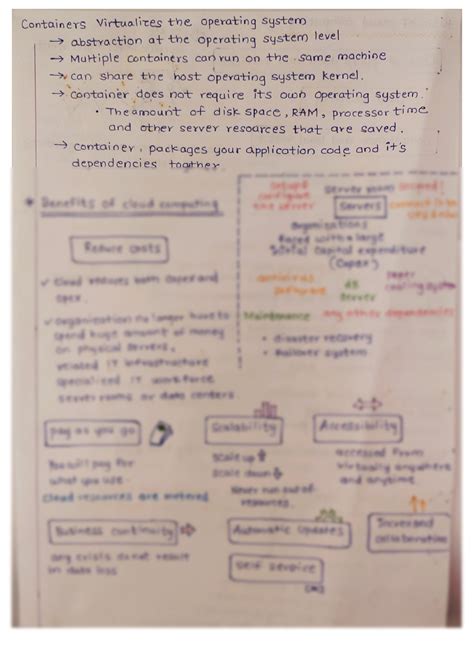 Containers Virtualizes the operating system
→ abstraction at the operating system level
→ Multiple containers can run on the same machine
→ can share the host operating system kernel.
→ container does not require its own operating system.
• The amount of disk space, RAM, processor time
and other server resources that are saved.
→ container, packages your application code and it's
dependencies together
Benefits of cloud computing
Server room
Servers
Organisations
Faced with a large
capital expenditure
(Capex)
Reduce costs
✓ Cloud reduces both capex and
opex.
antivirus
software
DB
Server
super
cooling system
✓ Organisation no longer have to
spend huge amount of money
on physical servers,
related IT infrastructure
specialised IT workforce
server rooms or data centers
Maintenance any other dependencies
• disaster recovery
• failover system
pay as you go
You will pay for
what you use.
cloud resources are metered
Scalability
Scale up
Scale down
Never run out of
resources.
Accessibility
accessed from
virtually anywhere
and anytime.
Business continuity
any crisis do not result
in data loss
Automatic Updates
Self service
Increased
collaboration